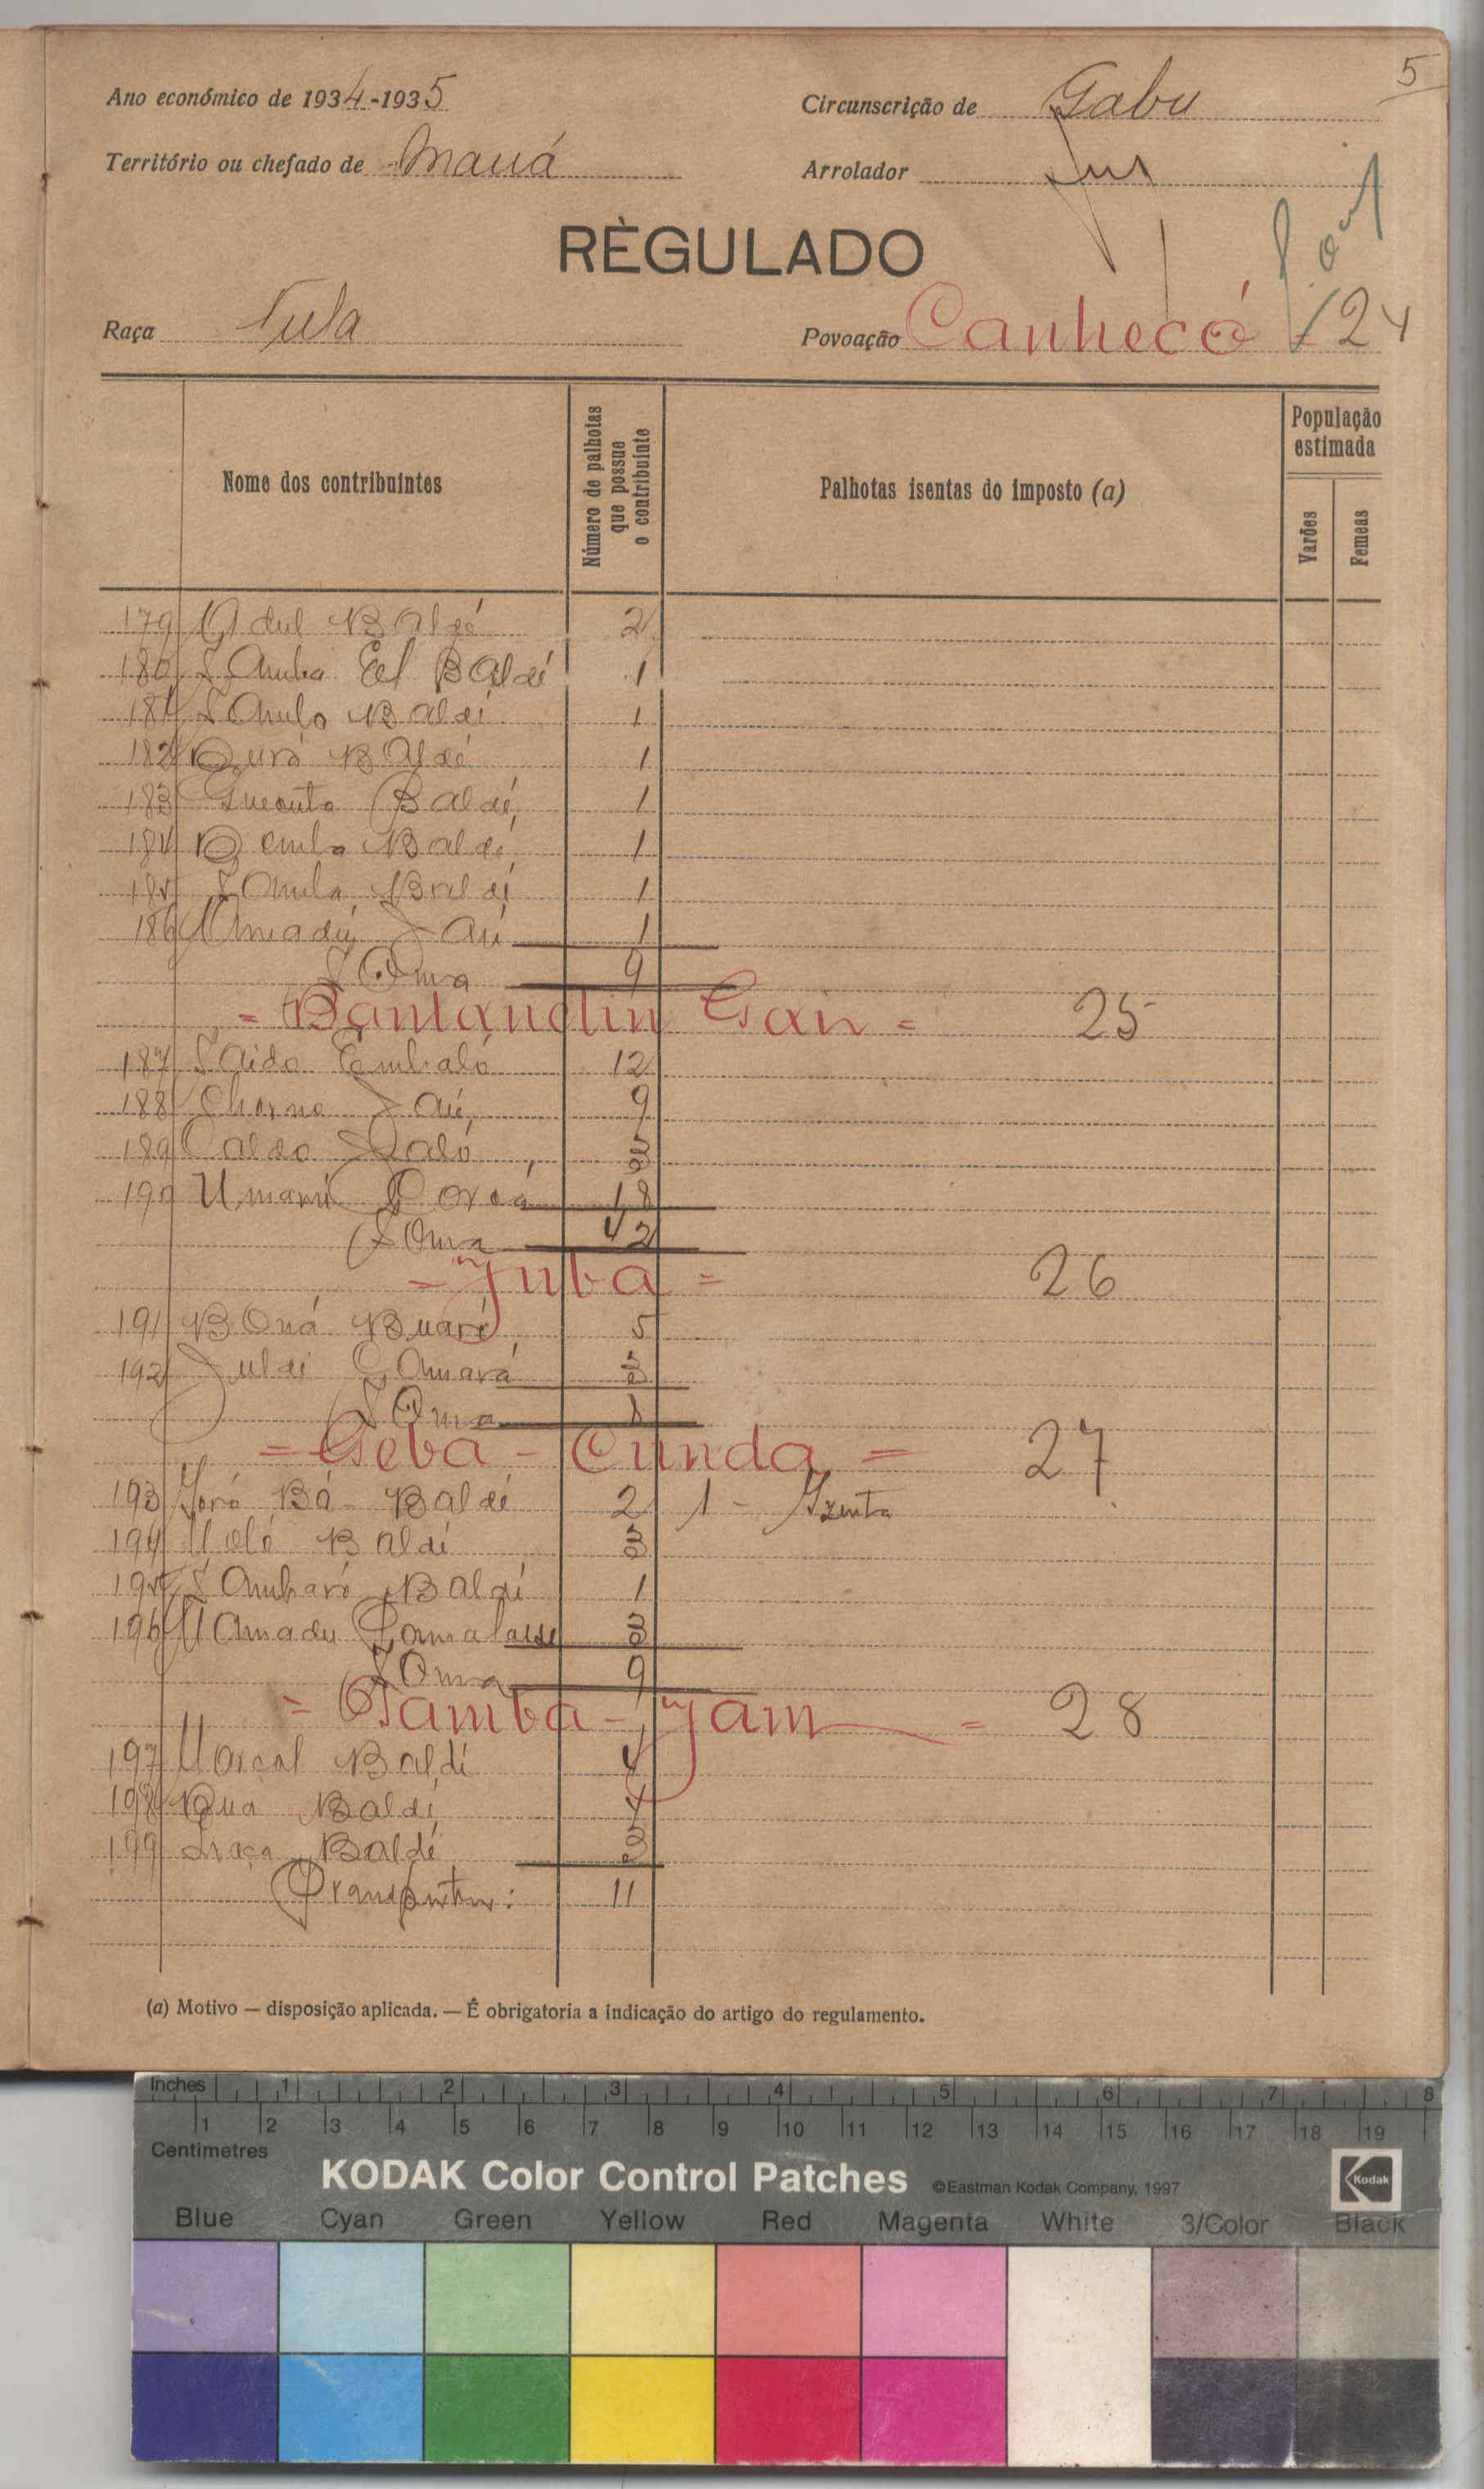 5
Ano económico de 1934-1935
Circunscrição de Gabu
Território ou chefado de Maná
Arrolador
RÈGULADO
Raça Fula
Povoação Canhecó - 24
Nome dos contribuintes
Número de palhotas que possue o contribuinte
Palhotas isentas do imposto (a)
População estimada
Varões
Femeas
179 Adul Baldé 2
180 Samba Eel Baldé 1
181 Sambo Baldé 1
182 Duró Baldé 1
183 Baldé 1
184 Demba Baldé 1
185 Samba Baldé 1
186 Amadú Jaú 1
Soma 9
= Bantanolin Gain = 25
187 Saido Embaló 12
188 Cherno Jaú 9
189 3
190 Umarú 18
Soma 42
= Juba = 26
191 Boná Buaré 5
192 Juldé Camará 3
Soma 8
= Geba - Cunda = 27
193 Joró Bá Baldé 2 1 - Izenta
194 Baldé 3
195 Sambaró Baldé 1
196 Mamadu 3
Soma 9
= Tamba - Jam = 28
197 Marcal Baldé 4
198 Baldé 4
199 Baldé 3
Transporte: 11
(a) Motivo — disposição aplicada. — É obrigatoria a indicação do artigo do regulamento.
Inches 1 2 3 4 5 6 7 8
1 2 3 4 5 6 7 8 9 10 11 12 13 14 15 16 17 18 19
Centimetres
KODAK Color Control Patches ©Eastman Kodak Company, 1997 Kodak
Blue Cyan Green Yellow Red Magenta White 3/Color Black